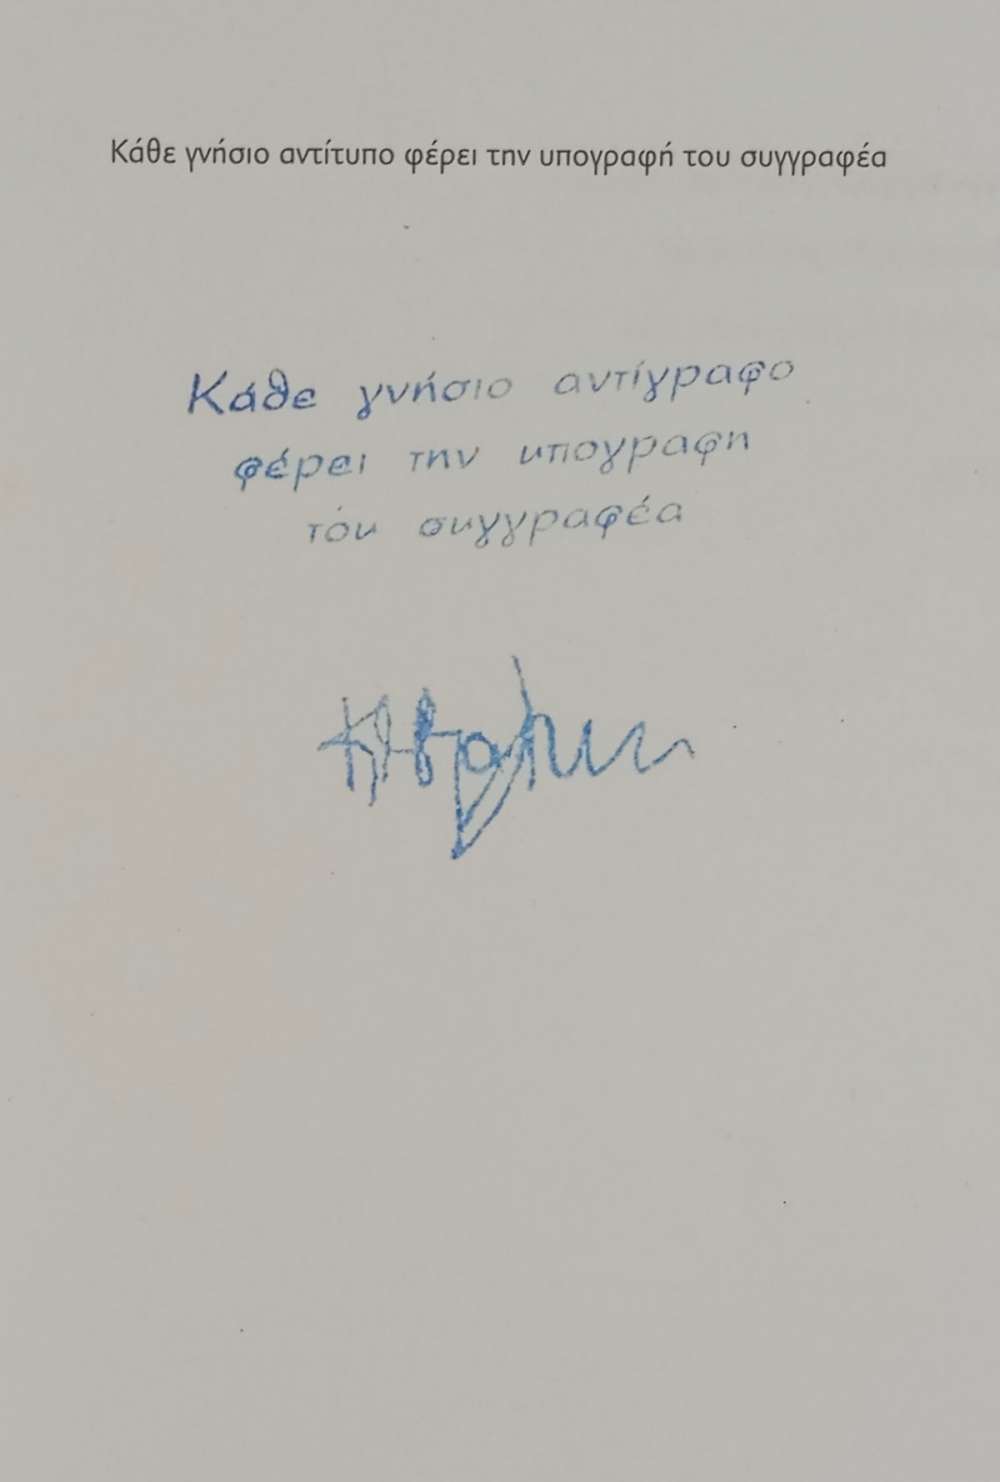 Κάθε γνήσιο αντίτυπο φέρει την υπογραφή του συγγραφέα
Κάθε γνήσιο αντίγραφο
φέρει την υπογραφη
του συγγραφέα